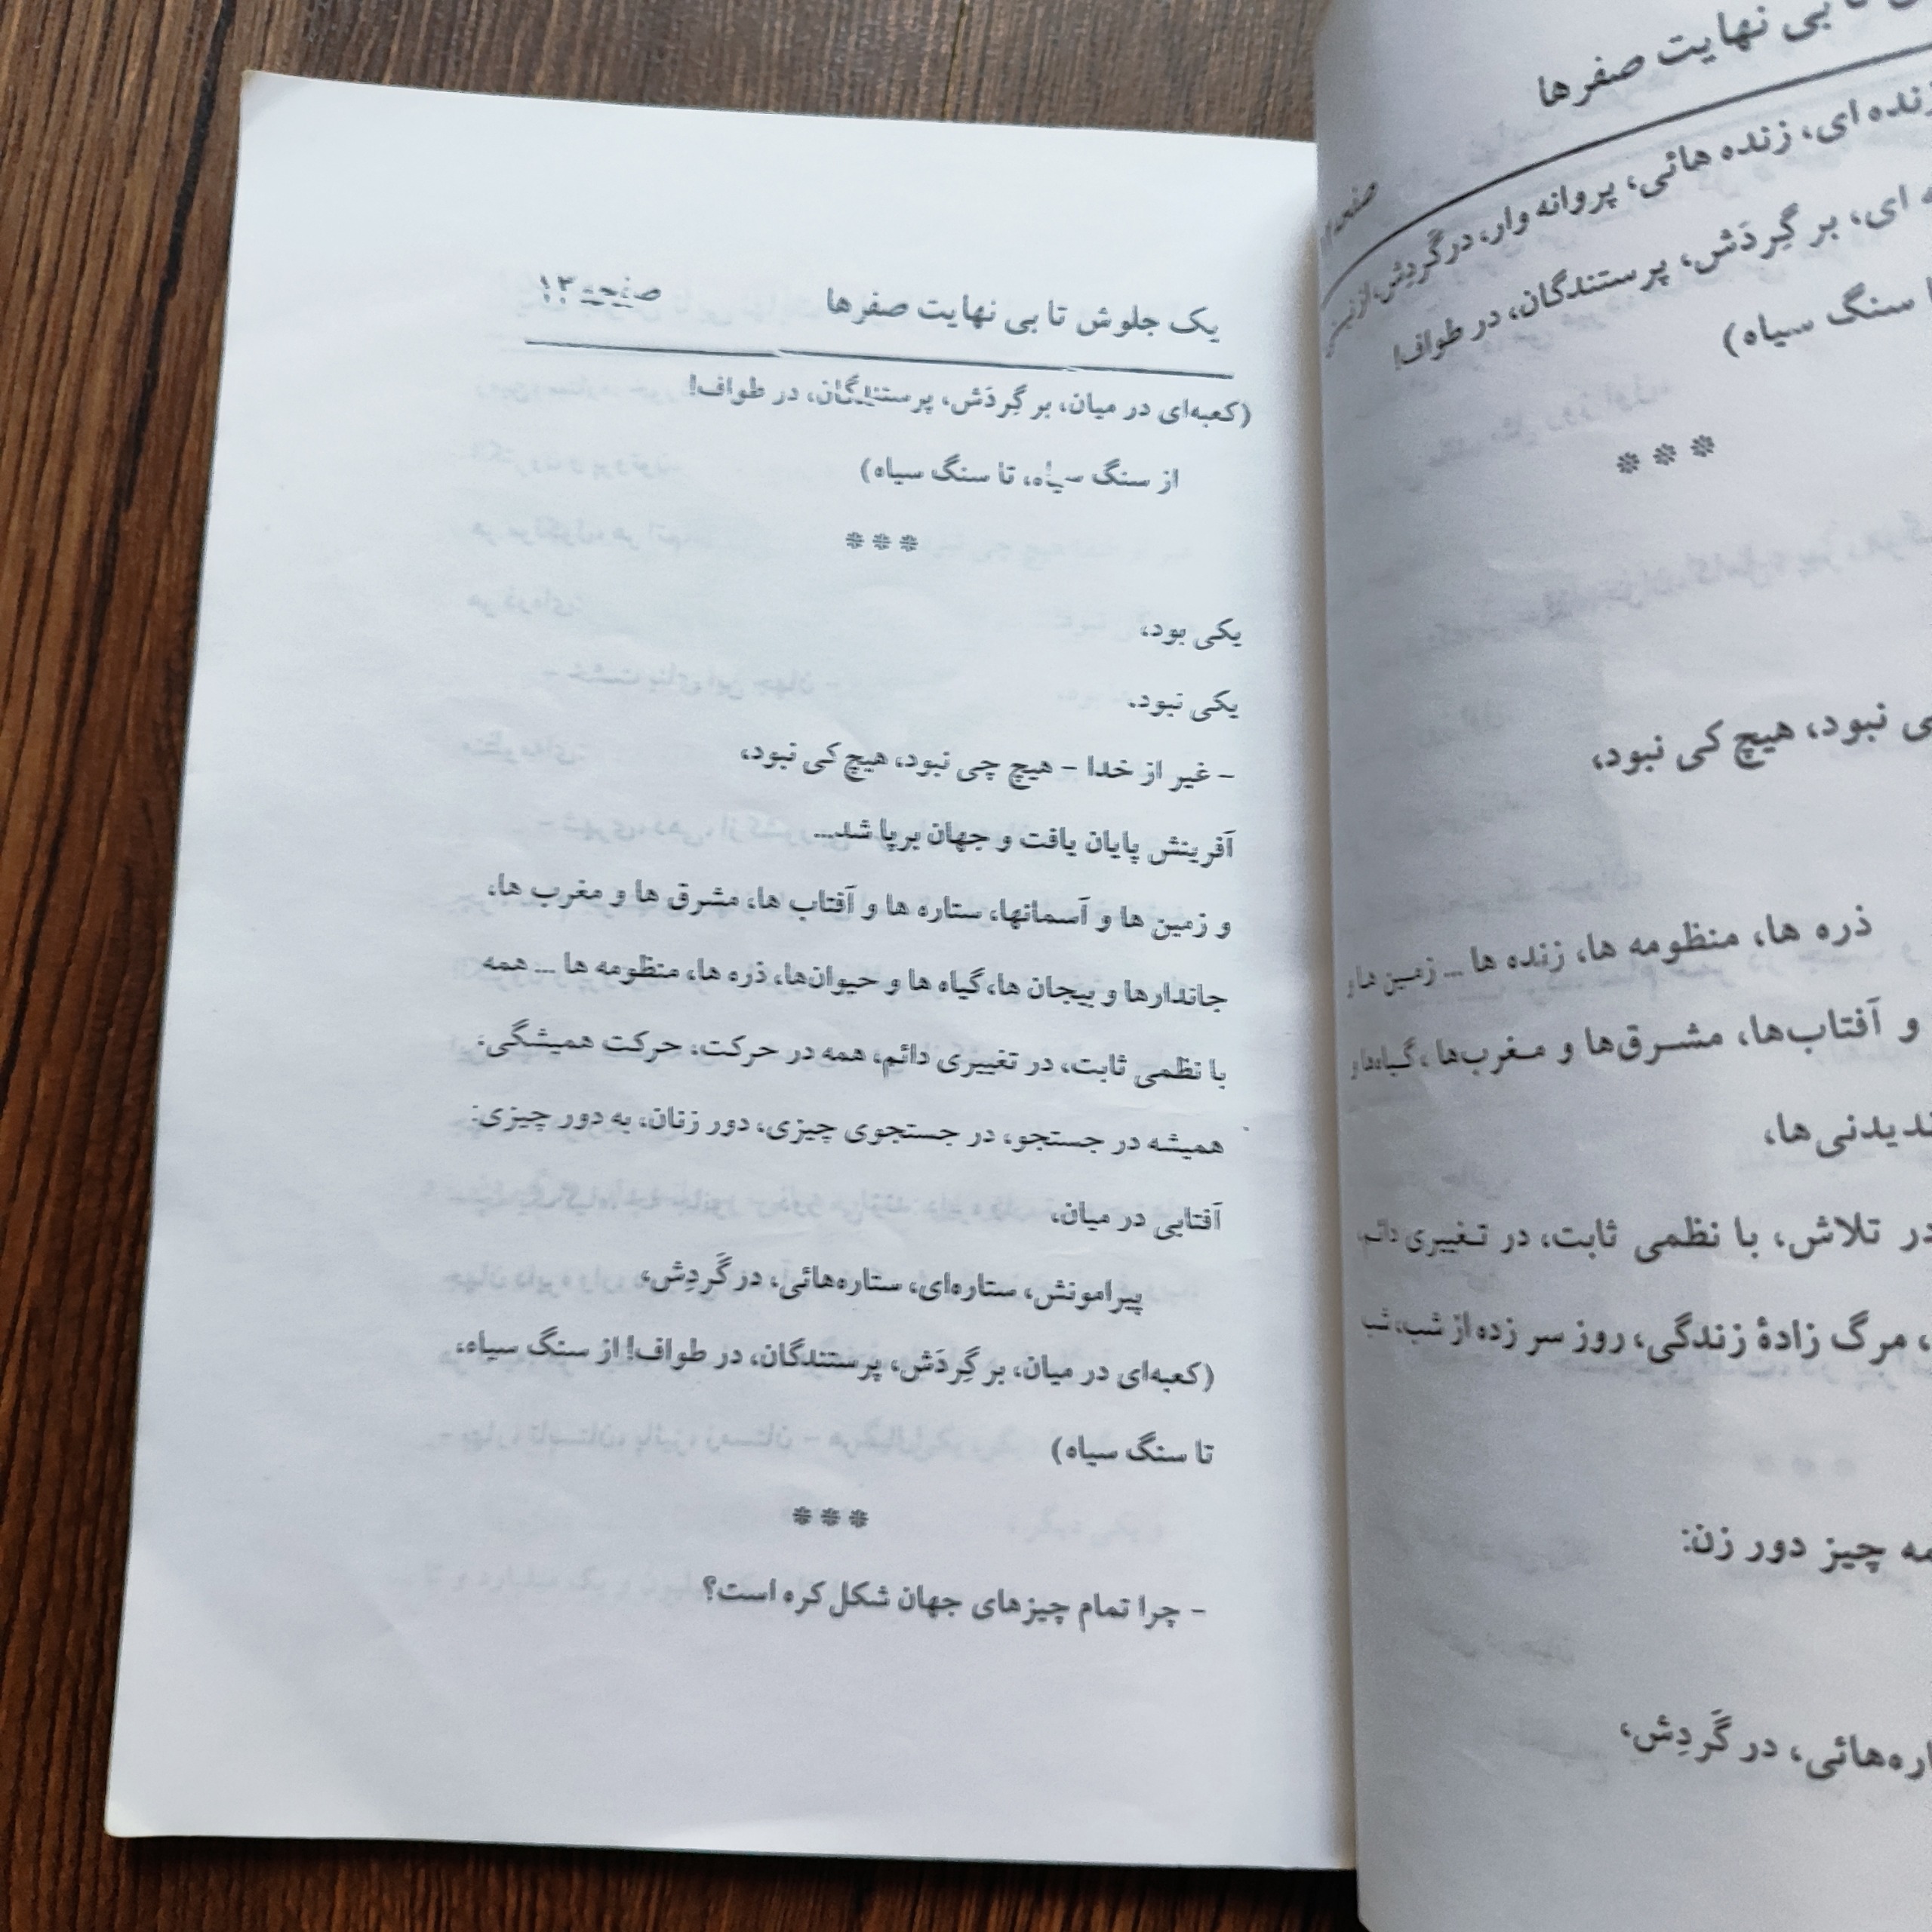 یک جلوش تا بی نهایت صفرها صفحه ۱۲
(کعبه‌ای در میان، بر گِردَش، پرستندگان، در طواف!
از سنگ سیاه، تا سنگ سیاه)
***
یکی بود،
یکی نبود.
- غیر از خدا - هیچ چی نبود، هیچ کی نبود،
آفرینش پایان یافت و جهان برپا شد...
و زمین ها و آسمانها، ستاره ها و آفتاب ها، مشرق ها و مغرب ها،
جاندارها و بیجان ها، گیاه ها و حیوان‌ها، ذره ها، منظومه ها ... همه
با نظمی ثابت، در تغییری دائم، همه در حرکت، حرکت همیشگی.
همیشه در جستجو، در جستجوی چیزی، دور زنان، به دور چیزی:
آفتابی در میان،
پیرامونش، ستاره‌ای، ستاره‌هائی، در گَردِش،
(کعبه‌ای در میان، بر گِردَش، پرستندگان، در طواف! از سنگ سیاه،
تا سنگ سیاه)
***
- چرا تمام چیزهای جهان شکل کره است؟
تا بی نهایت صفرها
صفحه
زنده ای، زنده هائی، پروانه وار، در گَردِش، از
ای، بر گِردَش، پرستندگان، در طواف!
سنگ سیاه)
***
نبود، هیچ کی نبود،
ذره ها، منظومه ها، زنده ها ... زمین ها و
و آفتاب‌ها، مشرق‌ها و مغرب‌ها، گیاه‌ها و
ندیدنی‌ها،
در تلاش، با نظمی ثابت، در تغییری دائم،
، مرگ زادهٔ زندگی، روز سر زده از شب، شب
چیز دور زن:
در گَردِش،